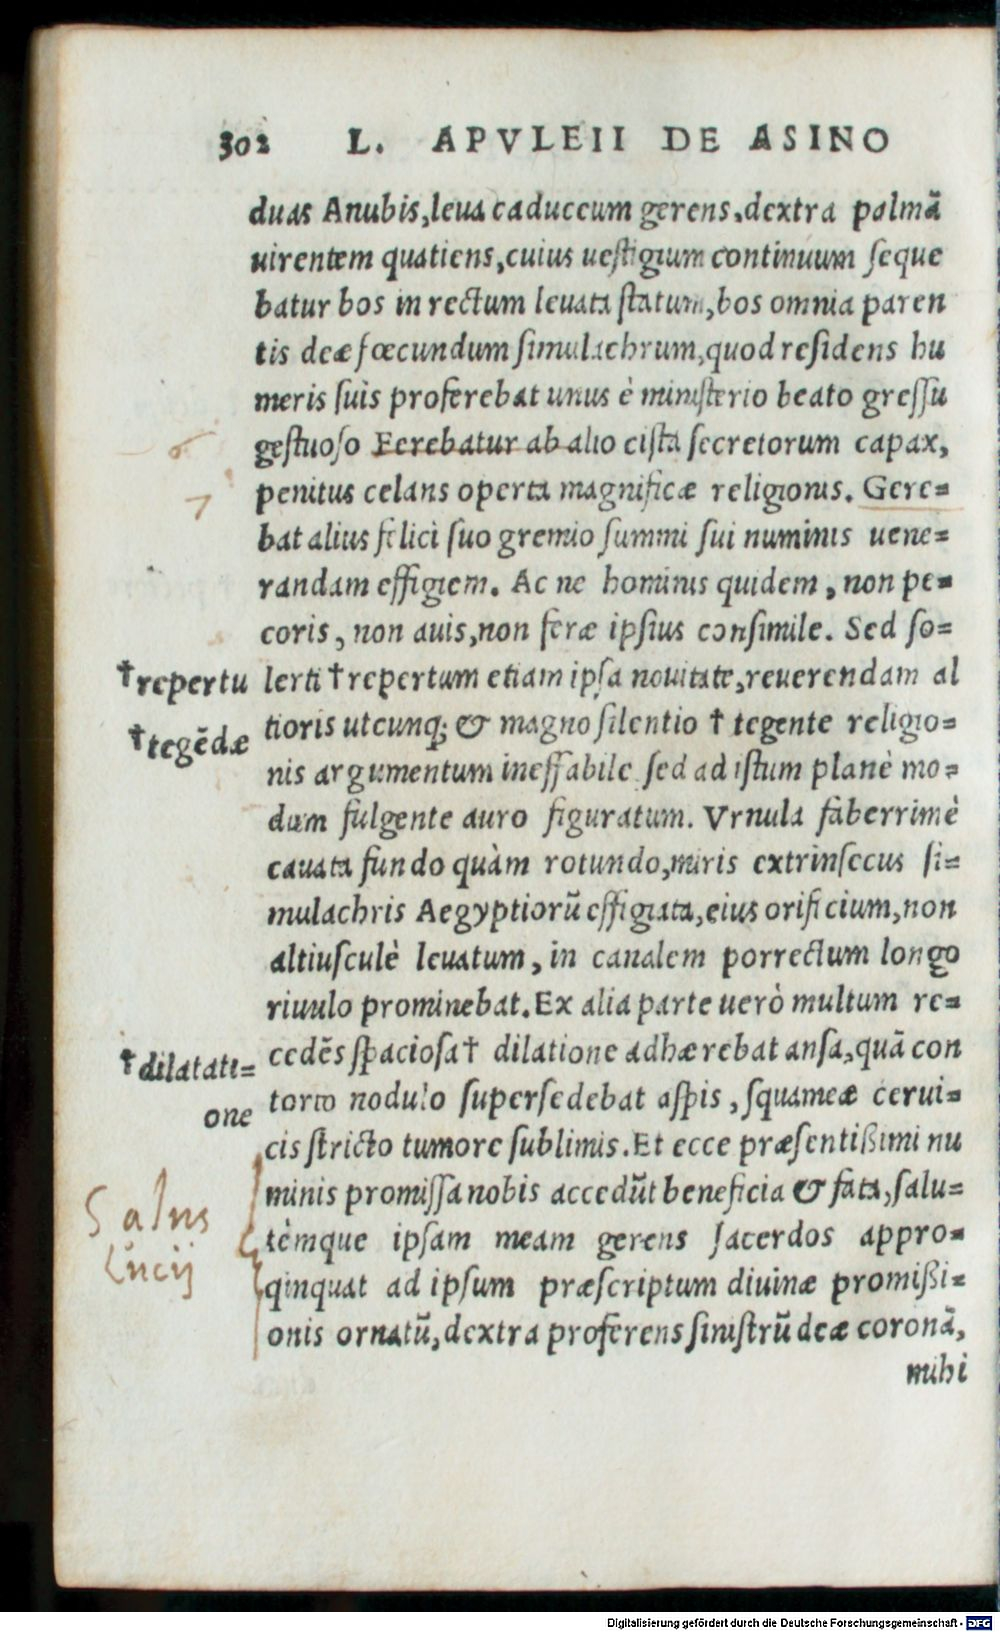 302 L. APVLEII DE ASINO
duas Anubis,leua caduceum gerens,dextra palmā
uirentem quatiens,cuius uestigium continuum seque
batur bos in rectum leuata statum,bos omnia paren
tis deæ fœcundum simulachrum,quod residens hu
meris suis proferebat unus è ministerio beato gressu
gestuoso Ferebatur ab alio cista secretorum capax,
6
penitus celans operta magnificæ religionis. Gere=
7
bat alius felici suo gremio summi sui numinis uene=
randam effigiem. Ac ne hominis quidem, non pe=
coris, non auis,non feræ ipsius consimile. Sed so=
†repertu lerti †repertum etiam ipsa nouitate,reuerendam al
†tegēdæ tioris utcunq; & magno silentio † tegente religio=
nis argumentum ineffabile sed ad istum planè mo=
dum fulgente auro figuratum. Vrnula faberrimè
cauata fundo quàm rotundo,miris extrinsecus si=
mulachris Aegyptiorū effigiata,eius orificium,non
altiusculè leuatum, in canalem porrectum longo
riuulo prominebat. Ex alia parte uerò multum re=
†dilatati= cedēs spaciosa† dilatione adhærebat ansa,quā con
one torto nodulo supersedebat aspis, squameæ cerui=
cis stricto tumore sublimis. Et ecce præsentißimi nu
minis promissa nobis accedūt beneficia & fata,salu=
Salus
tèmque ipsam meam gerens sacerdos appro=
Lucij
qinquat ad ipsum præscriptum diuinæ promißi=
onis ornatū,dextra proferens sinistrū deæ coronā,
mihi
Digitalisierung gefördert durch die Deutsche Forschungsgemeinschaft - DFG